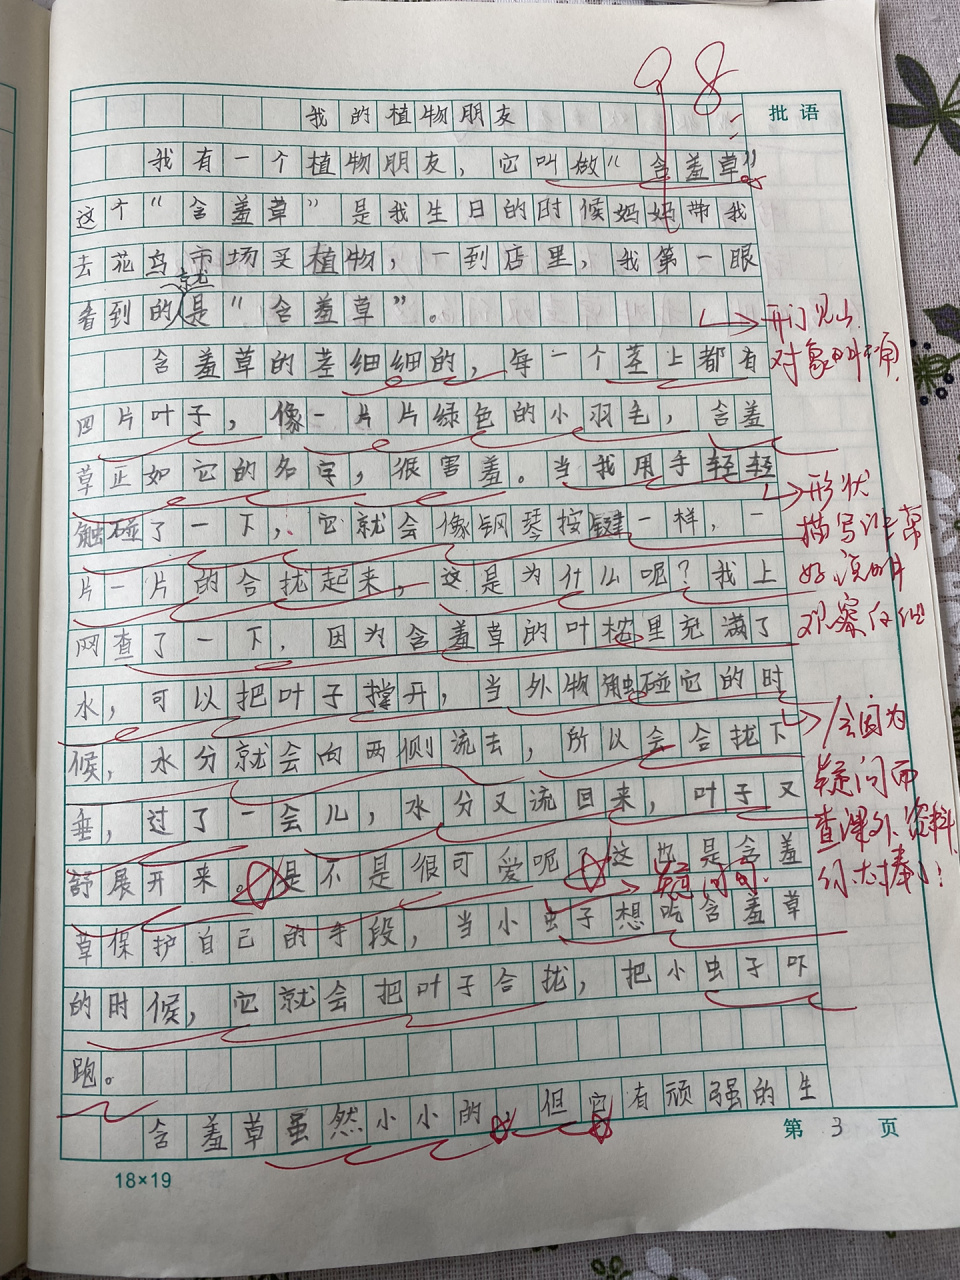 98
批语
我的植物朋友
我有一个植物朋友，它叫做“含羞草”
这个“含羞草”是我生日的时候妈妈带我
去花鸟市场买植物，一到店里，我第一眼
就
看到的是“含羞草”。
开门见山
对象明确
含羞草的茎细细的，每一个茎上都有
四片叶子，像一片片绿色的小羽毛，含羞
草正如它的名字，很害羞。当我用手轻轻
形状
触碰了一下，它就会像钢琴按键一样，一
描写
片一片的合拢起来，这是为什么呢？我上
好，说明
网查了一下，因为含羞草的叶枕里充满了
观察仔细
水，可以把叶子撑开，当外物触碰它的时
会因为
候，水分就会向两侧流去，所以会合拢下
疑问而
垂，过了一会儿，水分又流回来，叶子又
查课外资料
舒展开来。是不是很可爱呢？这也是含羞
问句。
草保护自己的手段，当小虫子想吃含羞草
的时候，它就会把叶子合拢，把小虫子吓
跑。
含羞草虽然小小的，但它有顽强的生
第 3 页
18×19